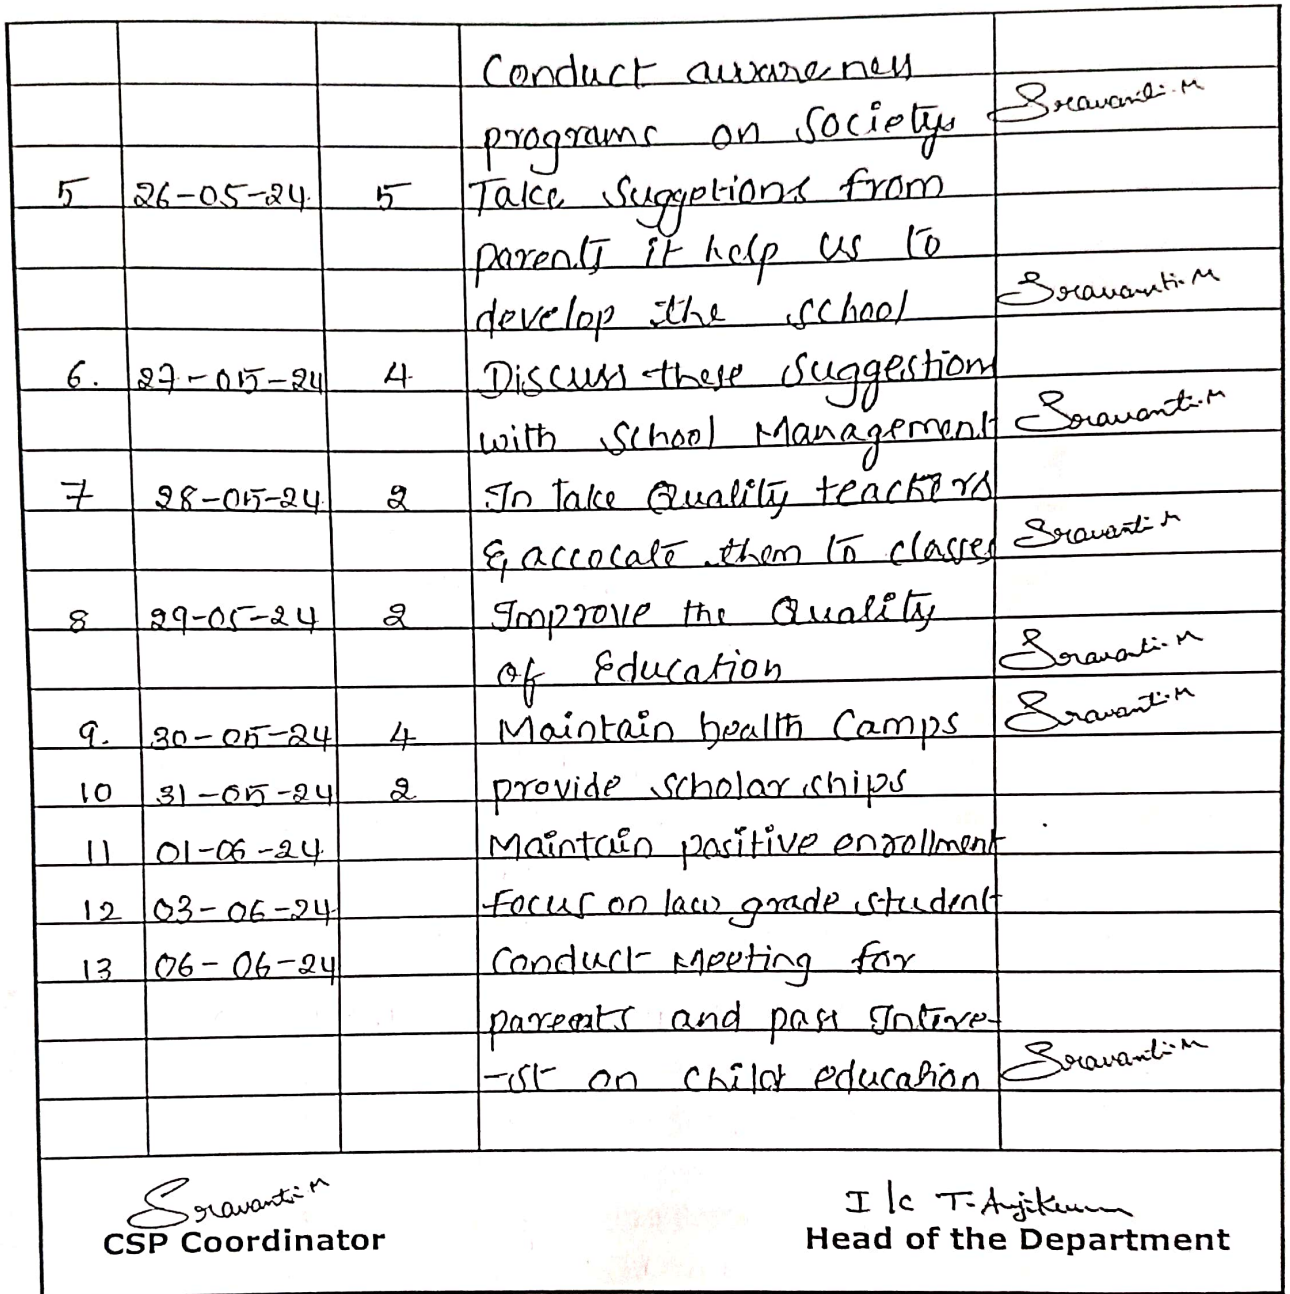 Conduct awareness
programs on Society Sravanti.M
5 26-05-24. 5 Take Suggetions from
parents it help us to
develop the school Sravanti.M
6. 27-05-24 4 Discuss these Suggestion
with School Management Sravanti.M
7 28-05-24 2 In take Quality teachers
& accocate them to classes Sravanti M
8 29-05-24 2 Improve the Quality
of Education Sravanti.M
9. 30-05-24 4 Maintain health Camps Sravanti.M
10 31-05-24 2 provide scholarships
11 01-06-24 Maintain positive enrollment
12 03-06-24 Focus on law grade student
13 06-06-24 Conduct Meeting for
parents and pass Intire-
-ist on child education Sravanti.M
Sravanti M I/c T. Anjikumar
CSP Coordinator Head of the Department